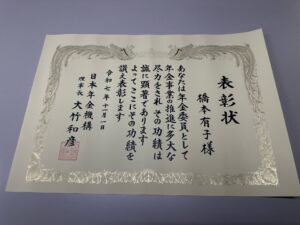 表彰状
橋本有子様
あなたは年金委員として
年金事業の推進に多大な
尽力をされ その功績は
誠に顕著であります
よってここにその功績を
讃え表彰します
令和七年十一月一日
日本年金機構
理事長 大竹和彦